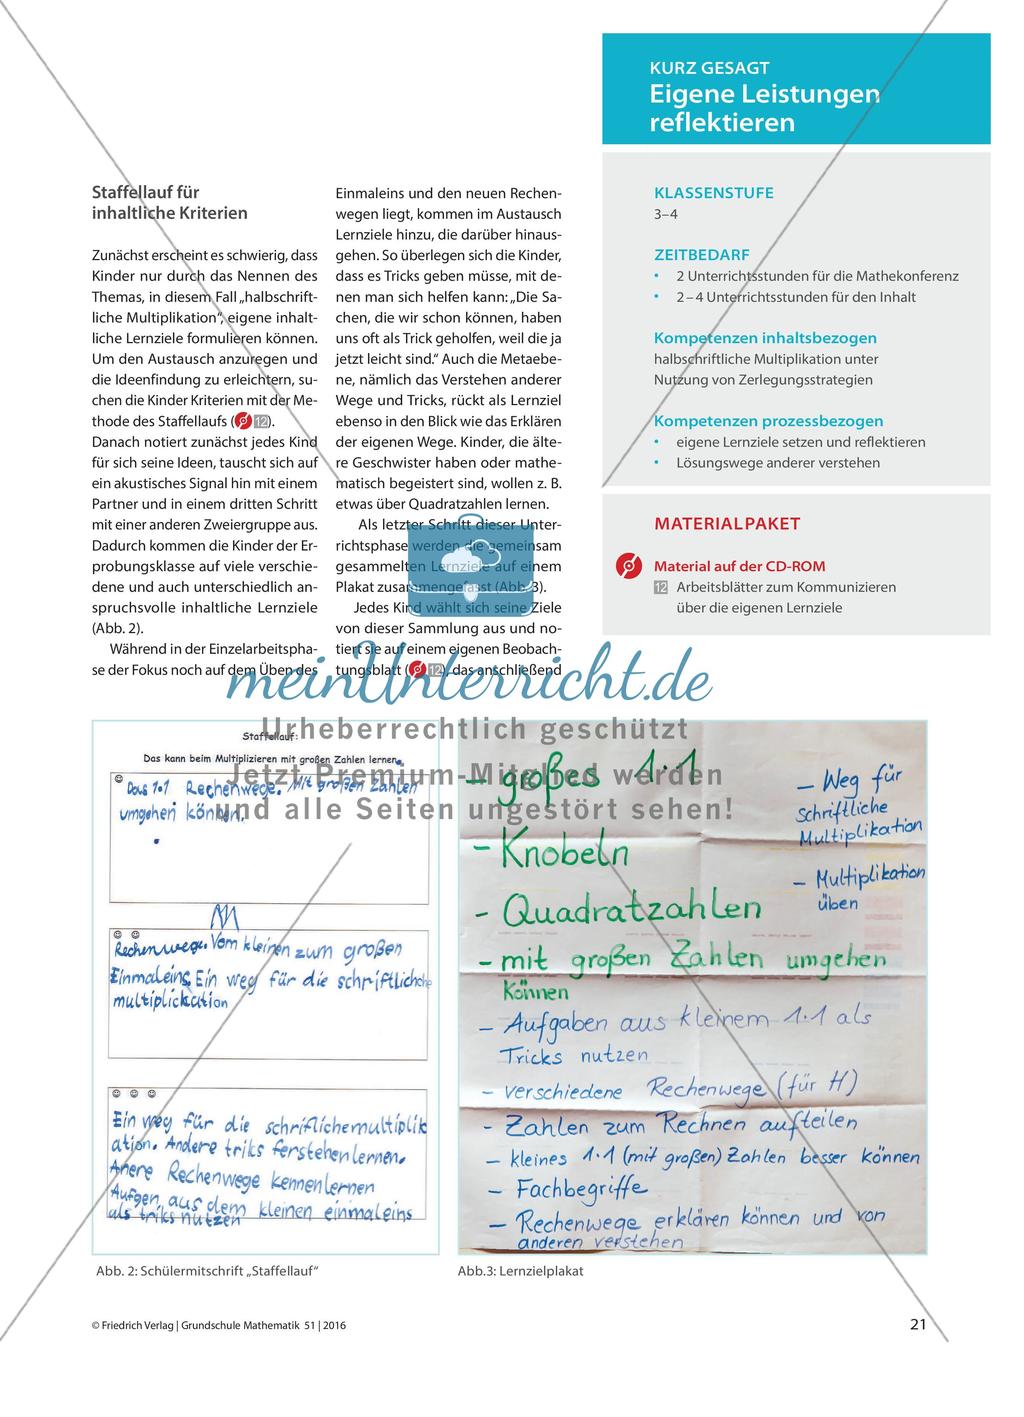 KURZ GESAGT
Eigene Leistungen
reflektieren
Staffellauf für
inhaltliche Kriterien
Zunächst erscheint es schwierig, dass
Kinder nur durch das Nennen des
Themas, in diesem Fall „halbschrift-
liche Multiplikation“, eigene inhalt-
liche Lernziele formulieren können.
Um den Austausch anzuregen und
die Ideenfindung zu erleichtern, su-
chen die Kinder Kriterien mit der Me-
thode des Staffellaufs (12).
Danach notiert zunächst jedes Kind
für sich seine Ideen, tauscht sich auf
ein akustisches Signal hin mit einem
Partner und in einem dritten Schritt
mit einer anderen Zweiergruppe aus.
Dadurch kommen die Kinder der Er-
probungsklasse auf viele verschie-
dene und auch unterschiedlich an-
spruchsvolle inhaltliche Lernziele
(Abb. 2).
Während in der Einzelarbeitspha-
se der Fokus noch auf dem Üben des
Einmaleins und den neuen Rechen-
wegen liegt, kommen im Austausch
Lernziele hinzu, die darüber hinaus-
gehen. So überlegen sich die Kinder,
dass es Tricks geben müsse, mit de-
nen man sich helfen kann: „Die Sa-
chen, die wir schon können, haben
uns oft als Trick geholfen, weil die ja
jetzt leicht sind.“ Auch die Metaebe-
ne, nämlich das Verstehen anderer
Wege und Tricks, rückt als Lernziel
ebenso in den Blick wie das Erklären
der eigenen Wege. Kinder, die älte-
re Geschwister haben oder mathe-
matisch begeistert sind, wollen z. B.
etwas über Quadratzahlen lernen.
Als letzter Schritt dieser Unter-
richtsphase werden die gemeinsam
gesammelten Lernziele auf einem
Plakat zusammengefasst (Abb. 3).
Jedes Kind wählt sich seine Ziele
von dieser Sammlung aus und no-
tiert sie auf einem eigenen Beobach-
tungsblatt (12), das anschließend
KLASSENSTUFE
3–4
ZEITBEDARF
• 2 Unterrichtsstunden für die Mathekonferenz
• 2–4 Unterrichtsstunden für den Inhalt
Kompetenzen inhaltsbezogen
halbschriftliche Multiplikation unter
Nutzung von Zerlegungsstrategien
Kompetenzen prozessbezogen
• eigene Lernziele setzen und reflektieren
• Lösungswege anderer verstehen
MATERIALPAKET
Material auf der CD-ROM
12 Arbeitsblätter zum Kommunizieren
über die eigenen Lernziele
meinUnterricht.de
Urheberrechtlich geschützt
Jetzt Premium-Mitglied werden
und alle Seiten ungestört sehen!
Staffellauf:
Das kann beim Multiplizieren mit großen Zahlen lernen.
Das 1•1. Rechenwege. Mit großen Zahlen
umgehen können.
Rechenwege. Vom kleinen zum großen
Einmaleins. Ein weg für die schriftlichche
multiplickation
Ein weg für die schriflichemultiplik
ation. Andere triks ferstehen lernen.
Anere Rechenwege kennenlernen
Aufgen aus dem kleinen einmaleins
als triks nutzen
- großes 1·1
- Knobeln
- Quadratzahlen
- mit großen Zahlen umgehen
können
- Aufgaben aus kleinem 1·1 als
Tricks nutzen
- verschiedene Rechenwege (für H)
- Zahlen zum Rechnen aufteilen
- kleines 1·1 (mit großen) Zahlen besser können
- Fachbegriffe
- Rechenwege erklären können und von
anderen verstehen
- Weg für
schriftliche
Multiplikation
- Multiplikation
üben
Abb. 2: Schülermitschrift „Staffellauf“
Abb.3: Lernzielplakat
© Friedrich Verlag | Grundschule Mathematik 51 | 2016
21